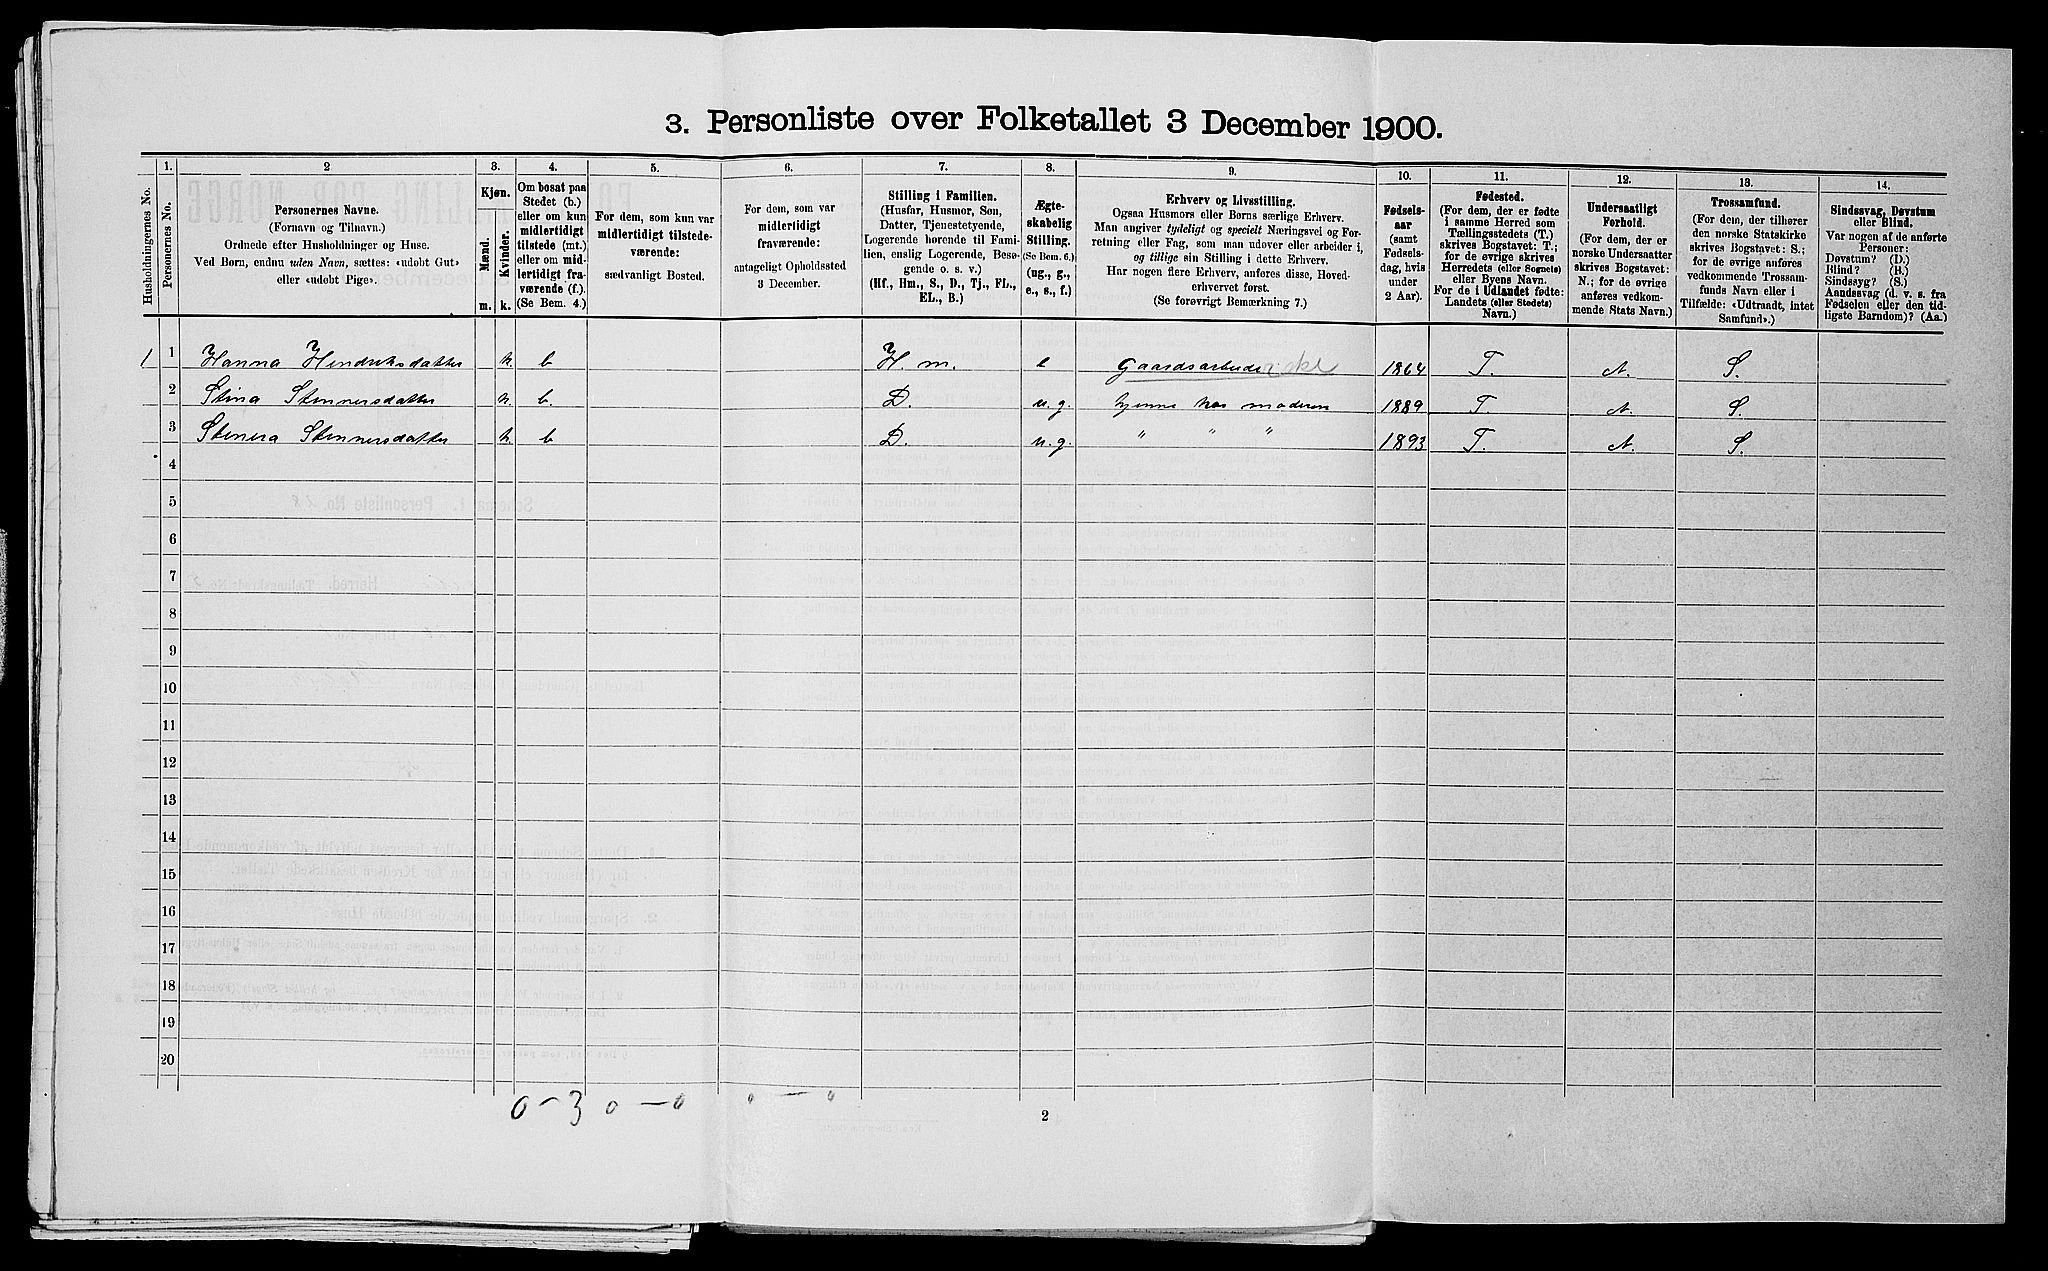 3. Personliste over Folketallet 3 December 1900.
Husholdningernes No.
1.
Personernes No.
2
Personernes Navne.
(Fornavn og Tilnavn.)
Ordnede efter Husholdninger og Huse.
Ved Børn, endnu uden Navn, sættes: «udøbt Gut»
eller «udøbt Pige».
3.
Kjøn.
Mænd.
Kvinder.
m.
k.
4.
Om bosat paa
Stedet (b.)
eller om kun
midlertidigt
tilstede (mt.)
eller om mid-
lertidigt fra-
værende (f.).
(Se Bem. 4.)
5.
For dem, som kun var
midlertidigt tilstede-
værende:
sædvanligt Bosted.
6.
For dem, som var
midlertidigt
fraværende:
antageligt Opholdssted
3 December.
7.
Stilling i Familien.
(Husfar, Husmor, Søn,
Datter, Tjenestetyende,
Logerende hørende til Fami-
lien, enslig Logerende, Besø-
gende o. s. v.)
(Hf., Hm., S., D., Tj., FL.,
EL., B.)
8.
Ægte-
skabelig
Stilling.
(Se Bem. 6.)
(ug., g.,
e., s., f.)
9.
Erhverv og Livsstilling.
Ogsaa Husmors eller Børns særlige Erhverv.
Man angiver tydeligt og specielt Næringsvei og For-
retning eller Fag, som man udøver eller arbeider i,
og tillige sin Stilling i dette Erhverv.
Har nogen flere Erhverv, anføres disse, Hoved-
erhvervet først.
(Se forøvrigt Bemærkning 7.)
10.
Fødsels-
aar
(samt
Fødsels-
dag, hvis
under
2 Aar).
11.
Fødested.
(For dem, der er fødte
i samme Herred som
Tællingsstedets (T.)
skrives Bogstavet: T.;
for de øvrige skrives
Herredets (eller Sognets)
eller Byens Navn.
For de i Udlandet fødte:
Landets (eller Stedets)
Navn.)
12.
Undersaatligt
Forhold.
(For dem, der er
norske Undersaatter
skrives Bogstavet:
N.; for de øvrige
anføres vedkom-
mende Stats Navn.)
13.
Trossamfund.
(For dem, der tilhører
den norske Statskirke
skrives Bogstavet: S.;
for de øvrige anføres
vedkommende Trossam-
funds Navn eller i
Tilfælde: «Udtraadt, intet
Samfund».)
14.
Sindssvag, Døvstum
eller Blind.
Var nogen af de anførte
Personer:
Døvstum? (D.)
Blind? (B.)
Sindssyg? (S.)
Aandssvag (d. v. s. fra
Fødselen eller den tid-
ligste Barndom)? (Aa.)
1 1 Hanna Hendriksdatter k. b H. m. e Gaardsarbeiderske 1864 T. N. S.
2 Stina Stennersdatter k. b. D. u. g. hjemme hos moderen 1889 T. N. S.
3 Stenera Stennersdatter k b D. u. g. " " " 1893 T. N. S.
4
5
6
7
8
9
10
11
12
13
14
15
16
17
18
19
20
0 - 3 0 - 0 0 - 0
2